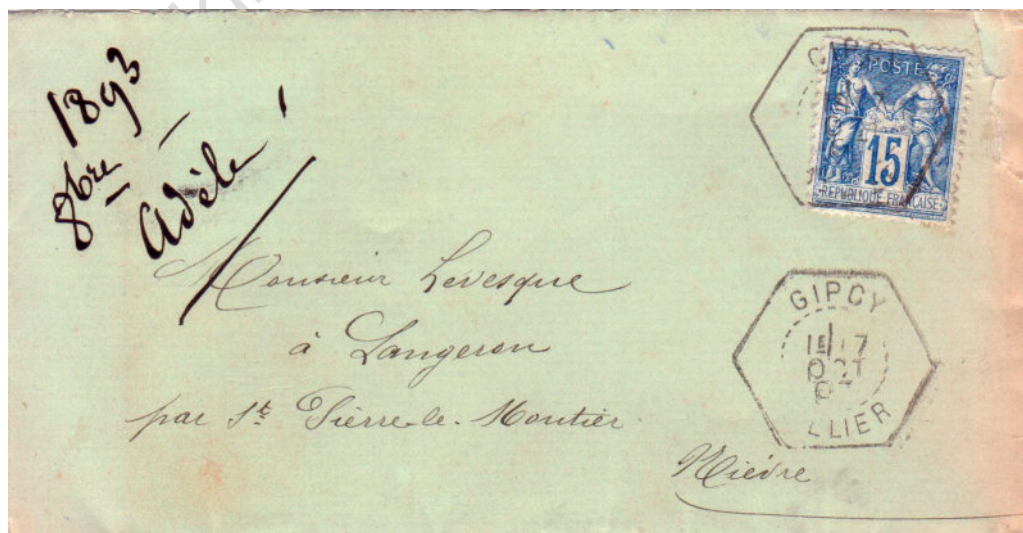 1893
8bre
Adèle
POSTES
15
REPUBLIQUE FRANCAISE
Monsieur Levesque
à Langeron
par St Pierre-le-Moutier
Nièvre
GIPCY
1E/17
OCT
ALLIER